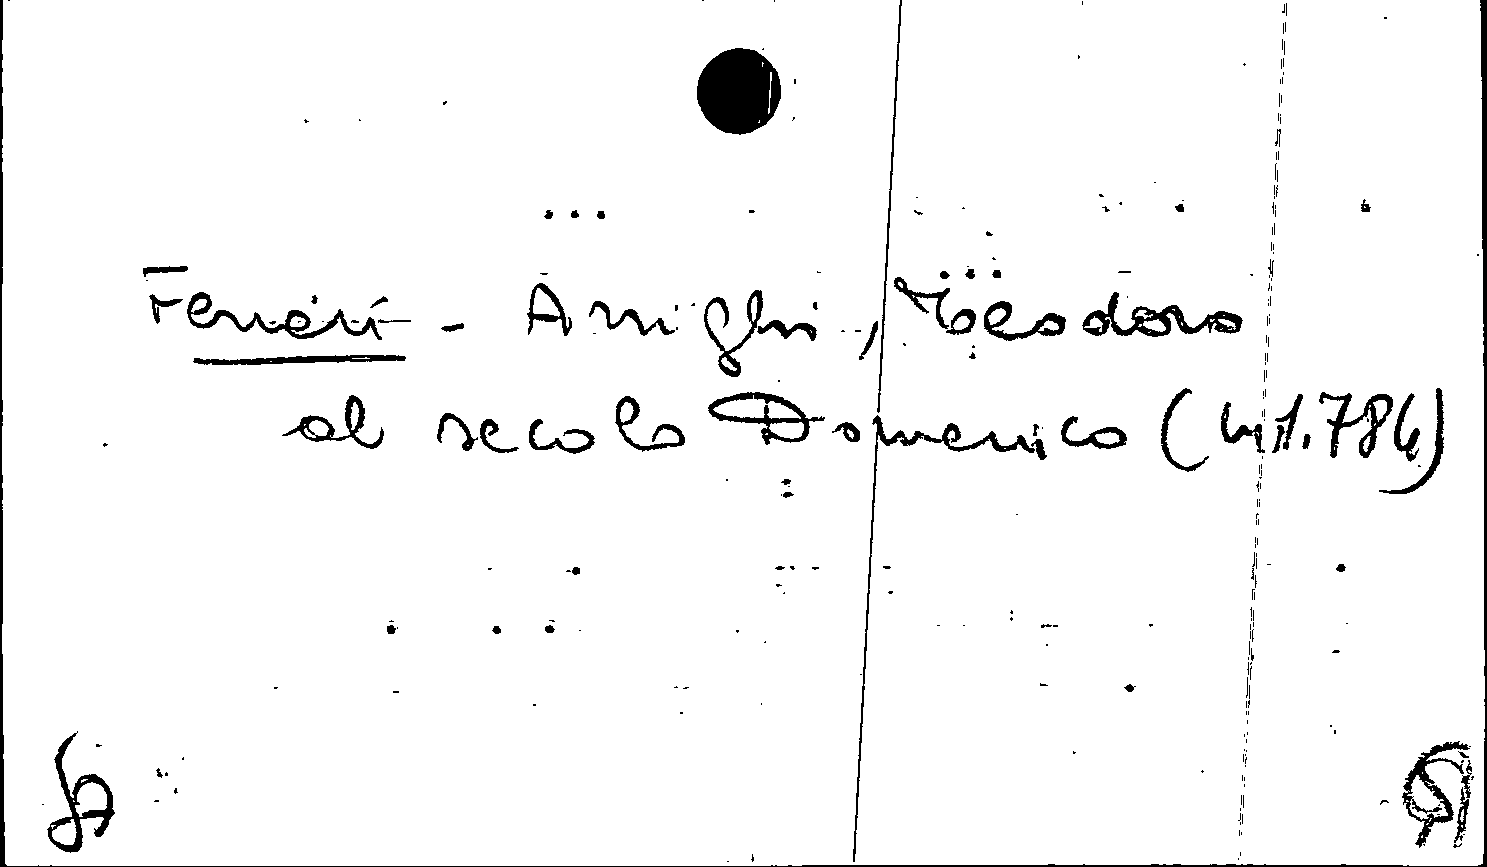 Ferrari - Arrighi, Teodoro
al secolo Domenico (m 1.784)